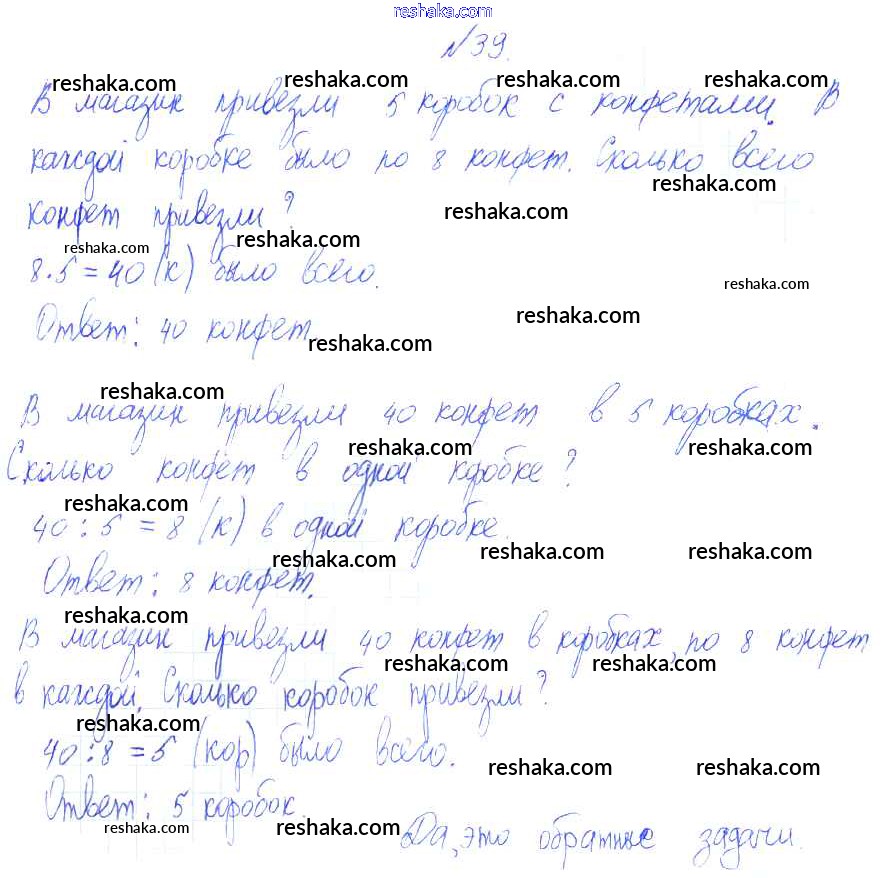 reshaka.com
№39.
reshaka.com reshaka.com reshaka.com reshaka.com
В магазин привезли 5 коробок с конфетами. В
каждой коробке было по 8 конфет. Сколько всего
reshaka.com
конфет привезли?
reshaka.com
reshaka.com reshaka.com
8·5=40 (к) было всего.
reshaka.com
Ответ: 40 конфет
reshaka.com
reshaka.com
reshaka.com
В магазин привезли 40 конфет в 5 коробках.
reshaka.com reshaka.com
Сколько конфет в одной коробке?
reshaka.com
40:5=8 (к) в одной коробке.
reshaka.com reshaka.com reshaka.com
Ответ: 8 конфет.
reshaka.com
В магазин привезли 40 конфет в коробках, по 8 конфет
reshaka.com reshaka.com
в каждой. Сколько коробок привезли?
reshaka.com
40:8=5 (кор) было всего.
reshaka.com reshaka.com
Ответ: 5 коробок.
reshaka.com reshaka.com
Да, это обратные задачи.